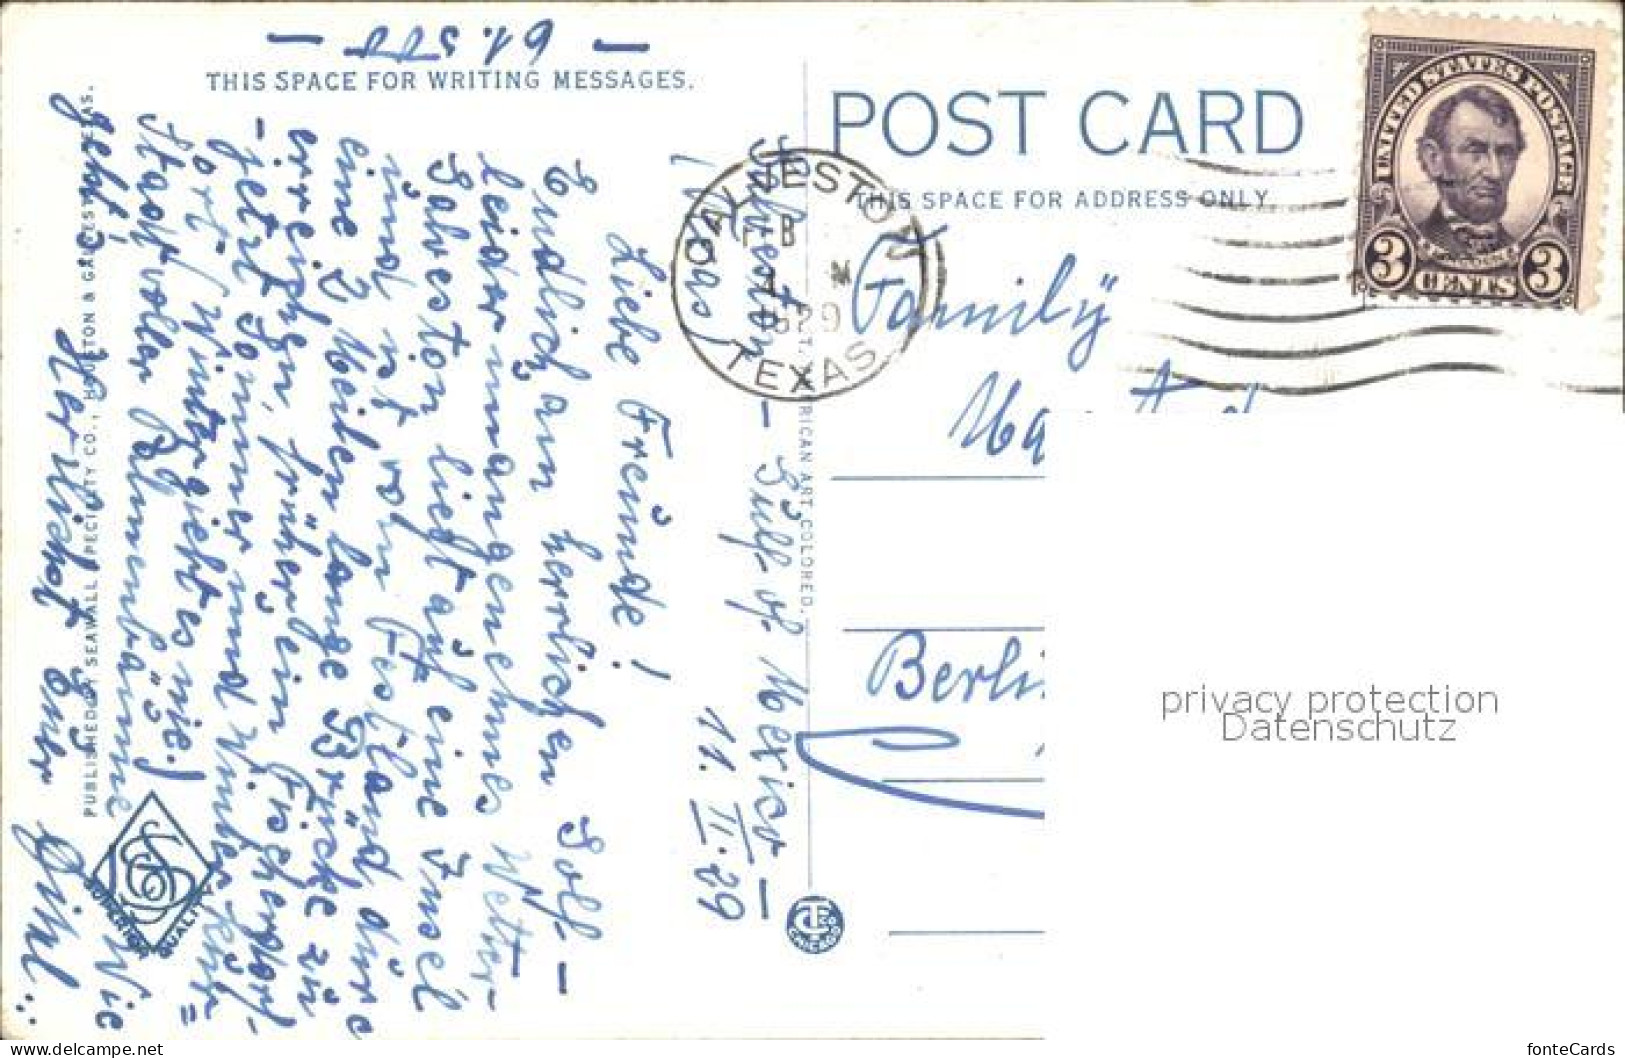 - 61.500 -
THIS SPACE FOR WRITING MESSAGES.
POST CARD
THIS SPACE FOR ADDRESS ONLY.
UNITED STATES POSTAGE
3 CENTS 3
GALVESTON
FEB
1929
TEXAS
Galveston - Gulf of Mexico -
(Texas)
11. II. 29
Liebe Freunde!
Endlich am herrlichen Golf -
leider unangenehmes Wetter -
Galveston liegt auf eine Insel
und ist vom Festland durc
eine 2 Meilen lange Brücke zu
erreichen, früher ein Fischerdorf -
- jetzt Sommer und Winter kur=
ort (Winter giebt es nie!)
Prachtvolle Palmenbäume
Wie
geht's
Herzlichst Euer
Family
Berli
PUBLISHED BY SEAWALL SPECIALTY CO., HOUSTON & GALVESTON, TEXAS.
AMERICAN ART COLORED.
SUPERIOR QUALITY
CHICAGO
privacy protection
Datenschutz
delcampe.net
fonteCards